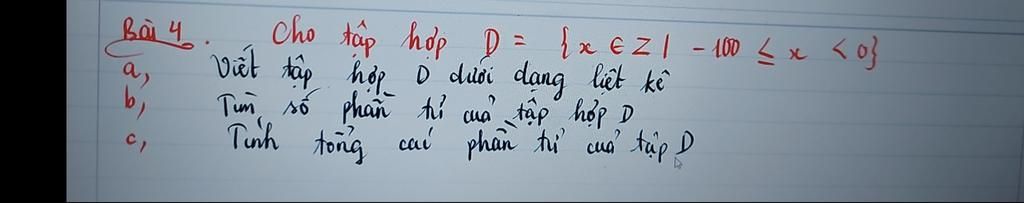 Bài 4. Cho tập hợp D = {x ∈ Z | -100 ≤ x < 0}
a, Viết tập hợp D dưới dạng liệt kê
b, Tìm số phần tử của tập hợp D
c, Tính tổng các phần tử của tập D